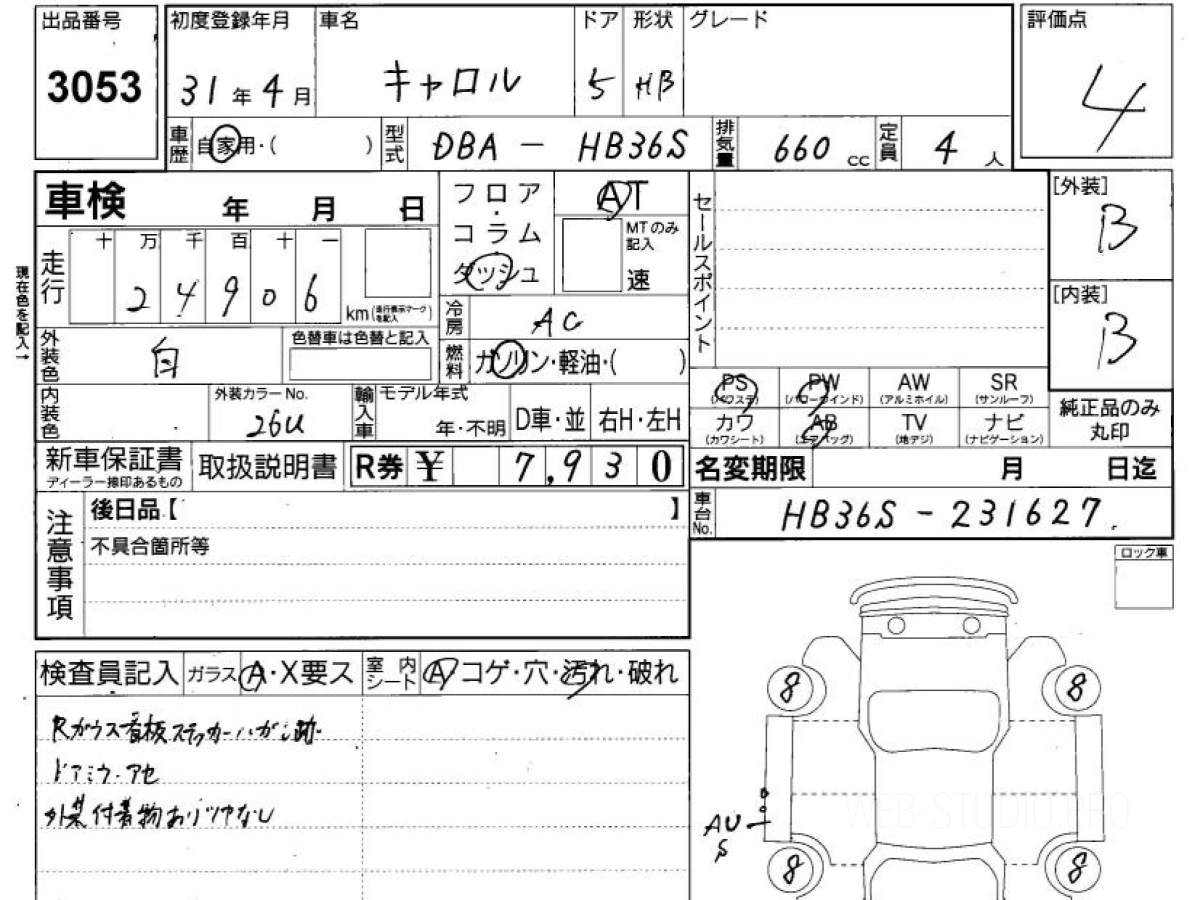 出品番号 初度登録年月 車名 ドア 形状 グレード 評価点
3053 31年4月 キャロル 5 HB 4
車歴 自家用・( ) 型式 DBA - HB36S 排気量 660 cc 定員 4 人
車検 年 月 日
フロア・コラム ダッシュ
AT
MTのみ記入
速
セールスポイント
[外装]
B
[内装]
B
現在色を記入→
走行 十 万 千 百 十 一
24906 km (走行表示マークを記入)
冷房 AC
外装色 白 色替車は色替と記入
燃料 ガソリン・軽油・( )
内装色 外装カラーNo. 26U 輸入車 モデル年式 年・不明 D車・並 右H・左H
PS (パワステ) PW (パワーウインド) AW (アルミホイル) SR (サンルーフ)
カワ (カワシート) AB (エアバッグ) TV (地デジ) ナビ (ナビゲーション)
純正品のみ丸印
新車保証書 ディーラー捺印あるもの 取扱説明書 R券 ¥ 7,930
名変期限 月 日迄
車台No. HB36S - 231627
注意事項
後日品【 】
不具合箇所等
ロック車
検査員記入 ガラス A・X要ス 室内シート A コゲ・穴・汚れ・破れ
Rガラス看板ステッカーハガシ跡
ドアミラーアセ
外装付着物ありツヤなし
8 8
AU
S
8 8
WEB-STUDIO.PRO